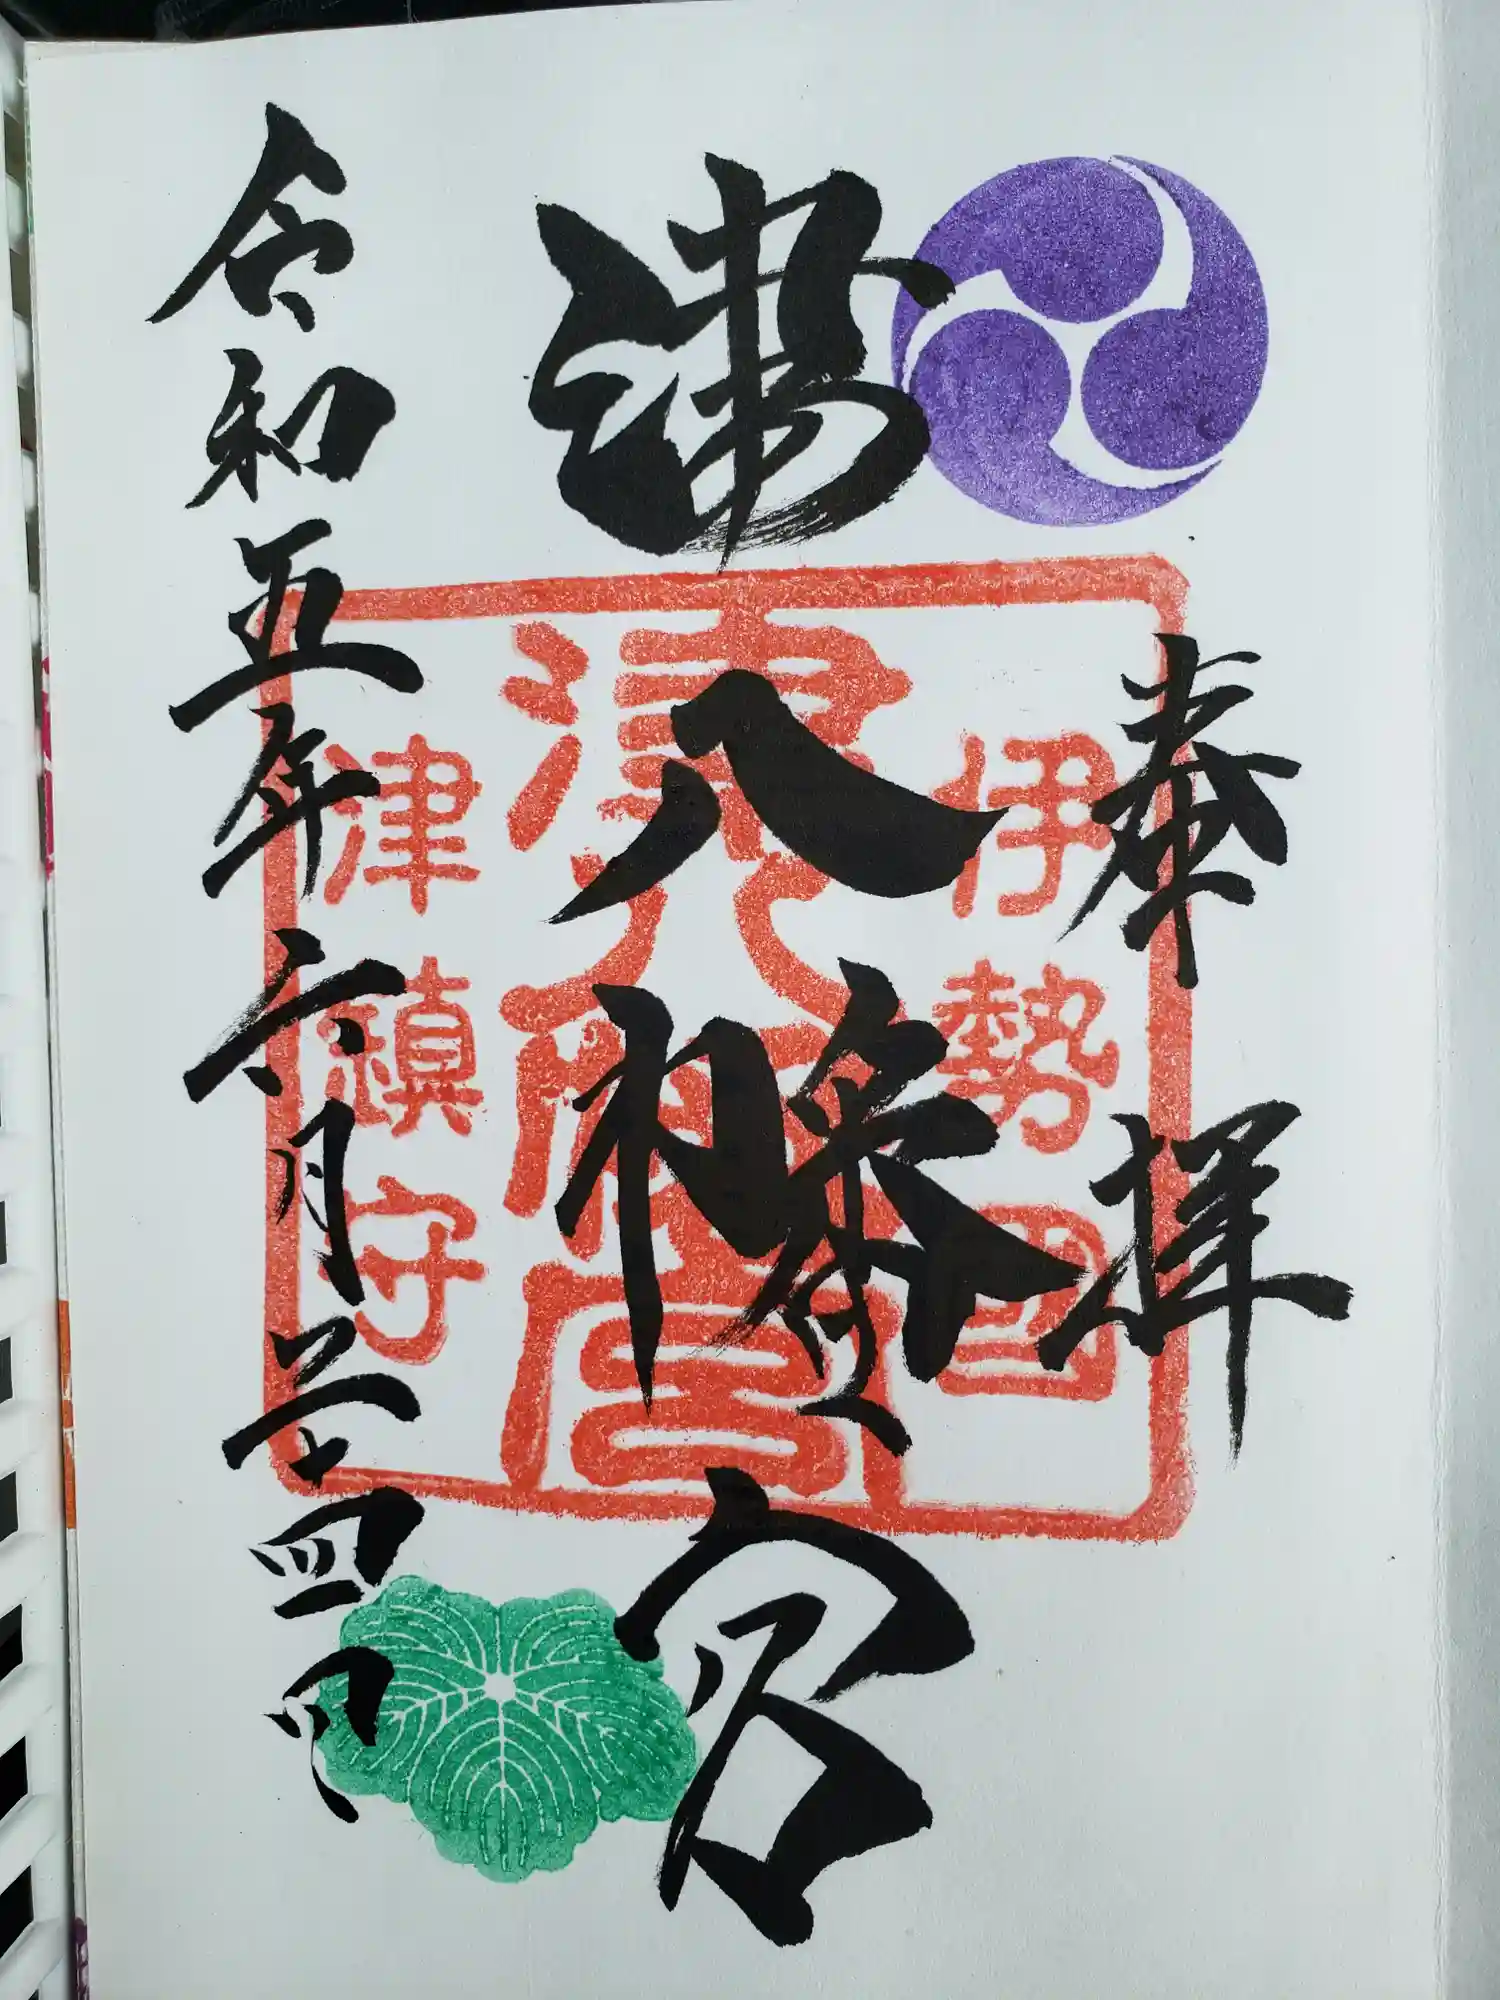 奉拝
伊勢國
津八幡宮
津八幡宮
津鎮守
令和五年六月二十四日